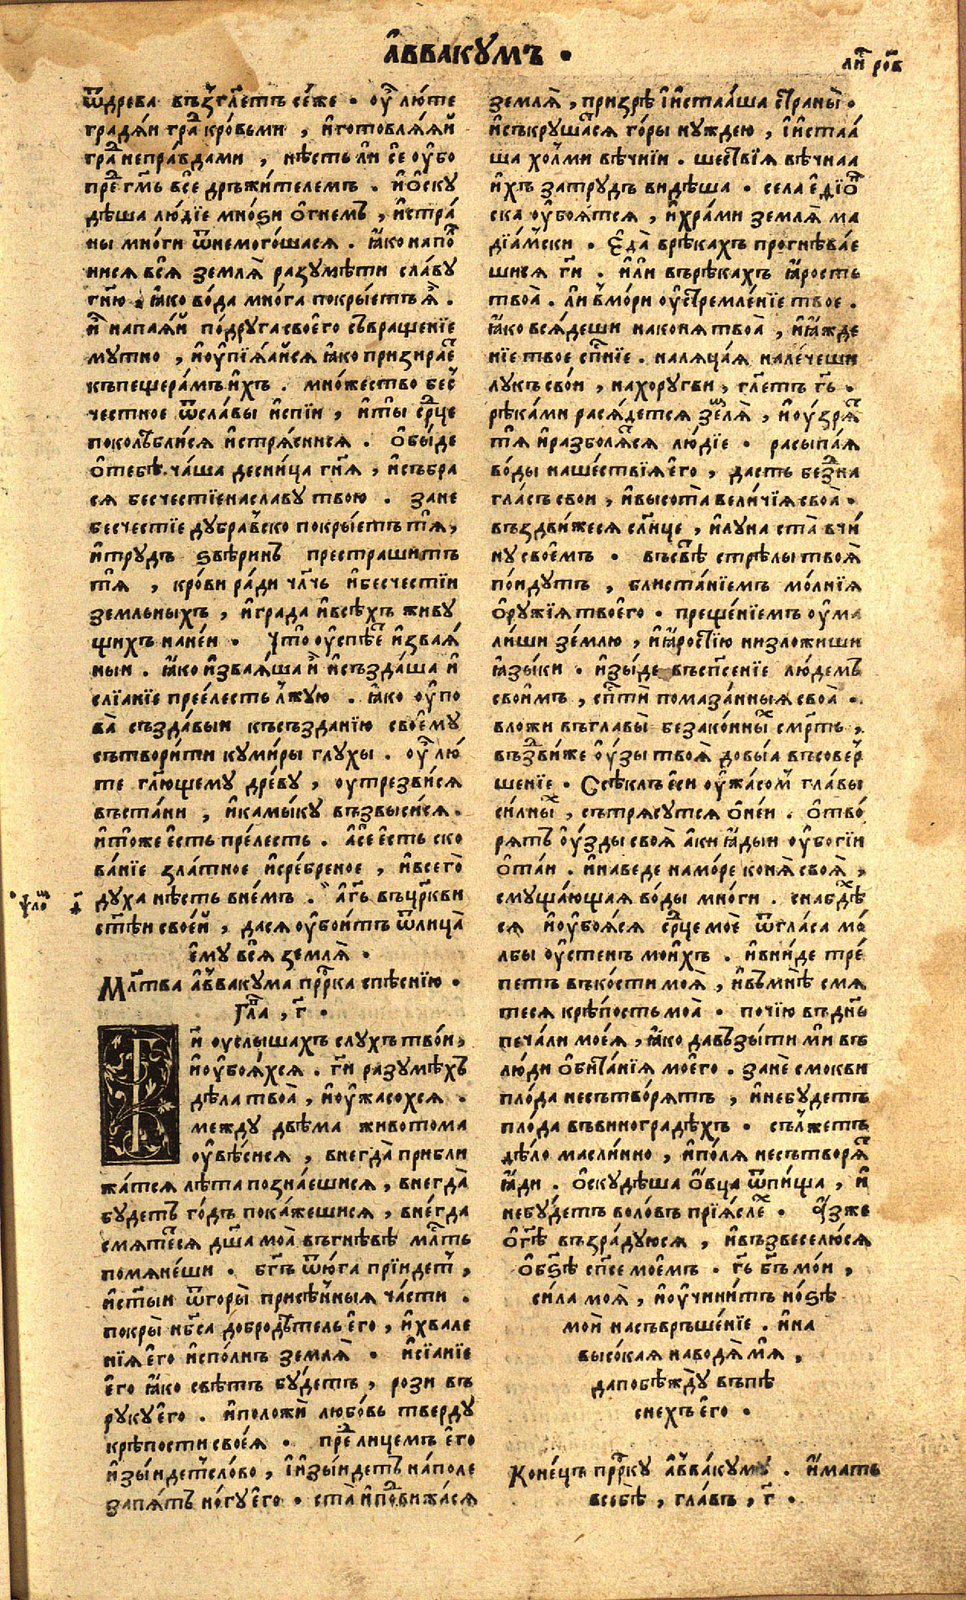 а҆ввакумъ ·
ли́ ров
ѿдрева възгл҃етъ се́же · оу҆ лю́те
градѧ́и гра́ кро́вьми , и҆готовлѧ́ѧй
гра́ непра́вдами , нѣсть ли҆ се҆ оу҆бо
пре гмь все҆ дръжителемъ · и҆ ѻ҆ску
дѣша лю́дїе мно́ѕи о҆гнемъ , и҆стра́
ны мно́ги ѿнемого́шасѧ · ꙗ҆ко напо
нисѧ всѧ҆ землѧ̀ разумѣти сла́ву
гню̀ , ꙗ҆ко во́да мно́га покры́етъ ѧ҆ ·
и҆ напаѧ́й по́друга своего̀ съвращенїе
мутно , и҆оупїѧ́айсѧ ꙗ҆ко призирае
къпещерамъ и҆хъ · мно́жество бес
честное ѿсла́вы и҆спїи , и҆ты̀ срце
поколѣбли́сѧ и҆стрѧсни́сѧ · ѻ҆бы́де
ѻ҆тебѣ ча́ша десни́ца гнѧ , и҆събра
сѧ бесче́стїе на сла́ву твою · зане
бесчестїе дубра́вско покры́етъ тѧ,
и҆трудъ ѕвѣринъ престрашитъ
тѧ , кро́ви ра́ди члчь и҆бесчестїи
земльныхъ , и҆града и҆всѣхъ живу
щихъ на не́и · что̀ оу҆спѣе и҆зваѧ́
ныи · ꙗ҆ко и҆зваѧ́ша и҆ и҆създа́ша и҆
слїанїе преле́сть лжую · ꙗ҆ко оу҆по
ва̀ създа́выи късъзданїю своему
сътвори́ти куми́ры глу́хы · оу҆ лю́
те глющему дре́ву , оутрезви́сѧ
въста́ни , и҆ка́мыку възвы́сисѧ ·
и҆то́же е҆сть пре́лесть · а҆се е҆сть ско
ва́нїе зла́тное и҆сре́бреное , и҆всего̀
духа нѣсть внемъ · а҆гь въцркви
стѣи свое́й , дасѧ оу҆боитъ ѿлица̀
е҆му всѧ̀ землѧ̀ ·
Млтва а҆ввакума пррка спѣснїю ·
Гла , г ·
Ги оуслы́шахъ слухъ тво́и,
и҆оубоѧ́хсѧ · ги разумѣхъ
дѣла твоа̀ , и҆оу҆жасо́хсѧ ·
между двѣма живото́ма
оу҆вѣ́сисѧ , внегда̀ прибли
жа́тсѧ лѣта позна́ешисѧ , внегда̀
будетъ го́дъ пока́жешисѧ , вне́гда
смѧте́сѧ дша моа̀ въгнѣвѣ млть
помѧне́ши · бгъ ѿю́га прїи́дет ,
и҆сты́и ѿгоры̀ присѣнныѧ ча́сти ·
покры̀ нбса добродѣ́тель е҆го , и҆хвале
нїѧ е҆го и҆спо́лнь землѧ̀ · и҆сїанїе
е҆го ꙗ҆ко свѣтъ бу́детъ , розѝ въ
руку е҆го · и҆положѝ любо́вь тверду
крѣ́пости своеѧ̀ · пре лицемъ е҆го
и҆зы́идет сло́во , и҆ и҆зы́идетъ на́поле
запѧ́тъ но́гу е҆го · ста̀ и҆подви́жасѧ
землѧ̀ , призрѣ̀ и҆ и҆ста́ѧша страны̀ ·
и҆съкруши́шасѧ го́ры ну́ждею , и҆ и҆стаа́
ша хо́лми вѣчнїи · ше́ствїѧ вѣчнаа
и҆хъ затрудъ ви́дѣша · села е҆дїо
ска оу҆боѧ́тсѧ , и҆хра́ми землѧ̀ ма
дїа́мски · Е҆да̀ врѣкахъ прогнѣвае
шисѧ ги · и҆лѝ върѣкахъ ꙗ҆рость
твоа̀ · ли вмо́ри оу҆стремле́нїе твое ·
ꙗ҆ко всѧ́деши наконѧ твоа̀ , и҆ꙗ҆жде
нїе твое спнїе · налѧца́ѧ налѧче́ши
лукъ сво́и , нахору́гви , глетъ гь ·
рѣка́ми расѧ́детсѧ землѧ̀ , и҆оу́зрѧ
тѧ и҆разболѧ́тсѧ лю́дїе · расыпа́ѧ
во́ды наше́ствїѧ е҆го , дасть бе́здна
гла́съ свои , и҆высота̀ вели́чїѧ своа̀ ·
въздви́жесѧ слнце , и҆луна ста̀ вчи́
ну своемъ · въсвѣ стрѣлы твоѧ̀
по́идутъ , блиста́нїемъ мо́лнїѧ
ѻ҆ру́жїѧ твоего̀ · преще́нїемъ оу҆ма
ли́ши зе́млю , и҆ꙗ҆ростїю низложиши
ꙗ҆зы́ки · и҆зы́де въспсенїе людемъ
своимъ , спстѝ помаза́нныѧ своа̀ ·
вложи въглавы̀ безако́нны смрть ,
въздви́же оу҆зы твоѧ̀ до́выа въсовер
шенїе · Ссѣклъ е҆си оу҆жа́сом гла́вы
си́лны , сътрѧсу́тсѧ ѻ҆ не́и · ѻ҆тво́
рѧтъ оу҆зды своѧ̀ а҆ки ꙗ҆дыи оу҆богїи
ѻ҆та́и · и҆наведе намо́ре конѧ̀ своѧ̀ ,
смуща́ющаѧ во́ды мно́ги · снабдѣ
сѧ и҆оу҆боѧ́сѧ срце моѐ ѿгла́са мо
лбы оу҆сте́нъ мои́хъ · и҆вни́де тре́
петъ въко́сти моѧ̀ , и҆въмнѣ смѧ
тесѧ крѣ́пость моа̀ · почїю въднь
печа́ли моеѧ̀ , ꙗ҆ко давъзы́ти ми въ
лю́ди ѻ҆бита́нїѧ моего̀ · занѐ смо́кви
пло́да несътворѧ́тъ , и҆небу́детъ
пло́да въвиноградѣхъ · сължетъ
дѣло масли́чно , и҆по́лѧ несътворѧ
ꙗ҆ди · ѻ҆скудѣша ѻ҆вца ѿпища , и҆
небу́детъ воло́въ прїѧ́слехъ · А҆зже
ѻ҆ гѣ възра́дуюсѧ , и҆възвеселю́сѧ
ѻ҆ бѕѣ спсе моемъ · гь бгъ мо́и ,
си́ла моѧ̀ , и҆оучини́тъ но́ѕѣ
мои насъврьше́нїе · и҆на
высо́каѧ наво́дѧ мѧ ,
дапобѣжду въпѣ
снехъ е҆го ·
Коне́цъ пррку а҆ввакуму · и҆мать
всебѣ , гла́въ , г ·